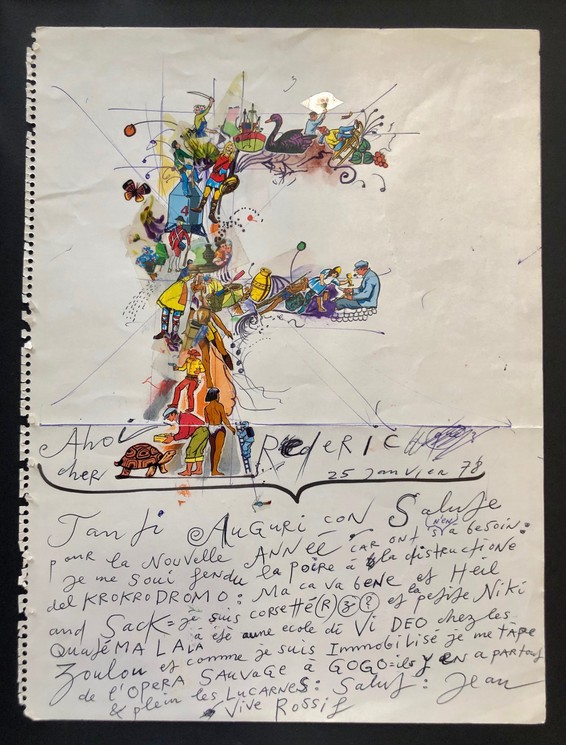 Ahoi
cher REDERIC
25 Janvier 78
Tanti AUGURI con Salute
pour la NOUVELLE ANNEE: CAR ont s'en a besoin:
je me suis fendu la poire à la distructione
del KROKRODROMO: Ma ca va bene et Heil
and SACK = je suis corsetté (R) 3 ? et la petite Niki
à été a une ecole di Vi DEO chez les
QUATEMALALA
Zoulou et comme je suis Immobilisé je me TAPE
de l'OPERA SAUVAGE à GOGO = ils y EN a PARTOUT
& plein les LUCARNES: Salut: Jean
Vive Rossif